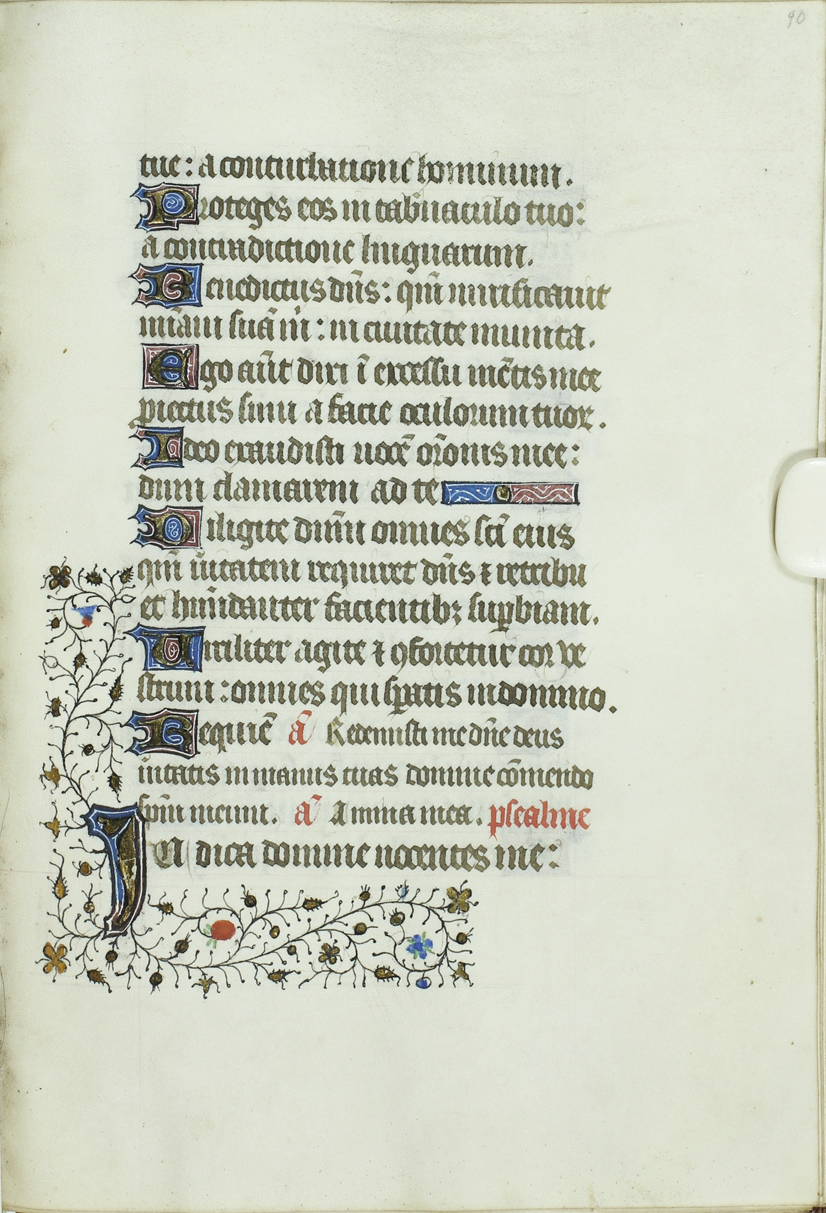 90
tue: a conturbatione hominum.
Proteges eos in tab̄naculo tuo:
a contradictione linguarum.
Benedictus dn̄s: qm̄ mirificauit
mīam suā m̄: in ciuitate munita.
Ego aūt dixi ī excessu mētis mee
piectus sum a facie oculorum tuoꝝ.
Ideo exaudisti uocē orōnis mee:
dum clamarem ad te
Diligite dīmū omnes sc̄i eius
qm̄ ūitatem requiret dn̄s ⁊ retribu
et hn̄idanter facientibꝫ suꝑbiam.
Uiriliter agite ⁊ ꝯfortetur cor ve
strum: omnes qui sꝑatis in domino.
Requiē a᷒ Redemisti me dn̄e deus
ūitatis in manus tuas domine cōmendo
spm̄ meum. a᷒ Anima mea. psealme
Iudica domine nocentes me: